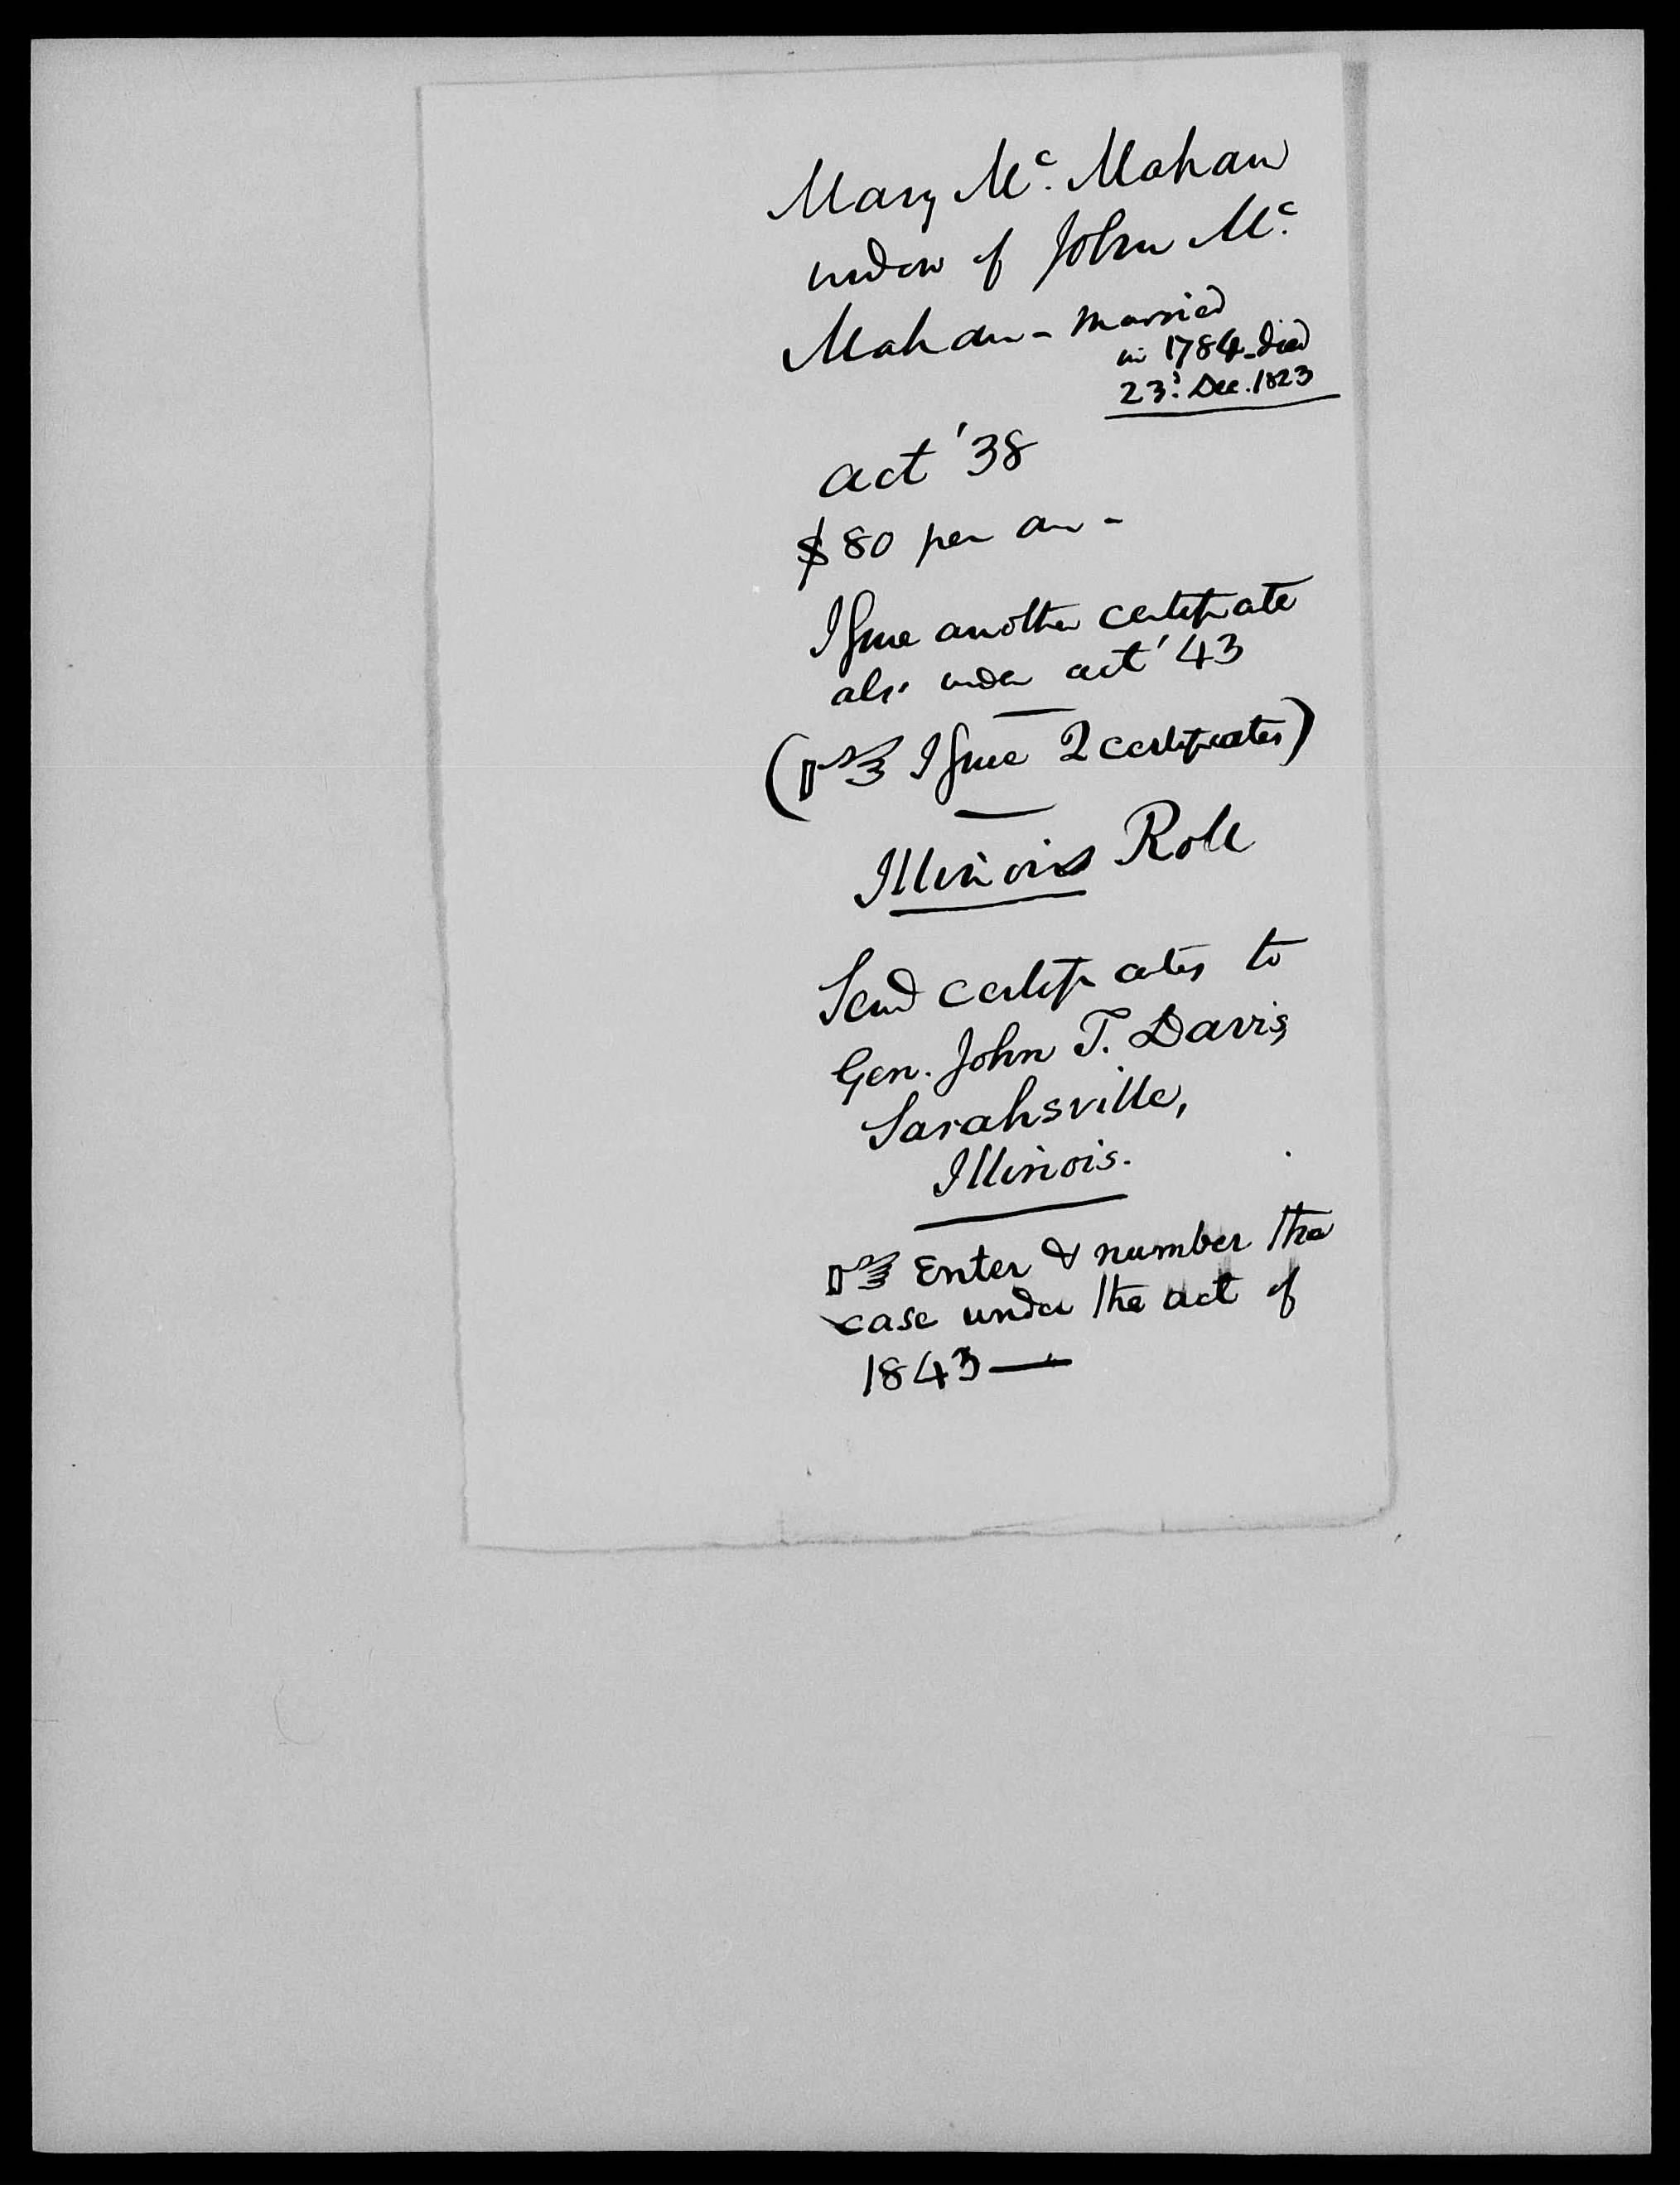 Mary Mc. Mahan
widow of John Mc.
Mahan - Married
in 1784 - died
23d. Dec. 1823
act '38
$80 per an -
Issue another certificate
also under act '43
(☞ Issue 2 certificates)
Illinois Roll
Send certificates to
Gen. John T. Davis,
Sarahsville,
Illinois.
☞ Enter & number the
case under the act of
1843 —